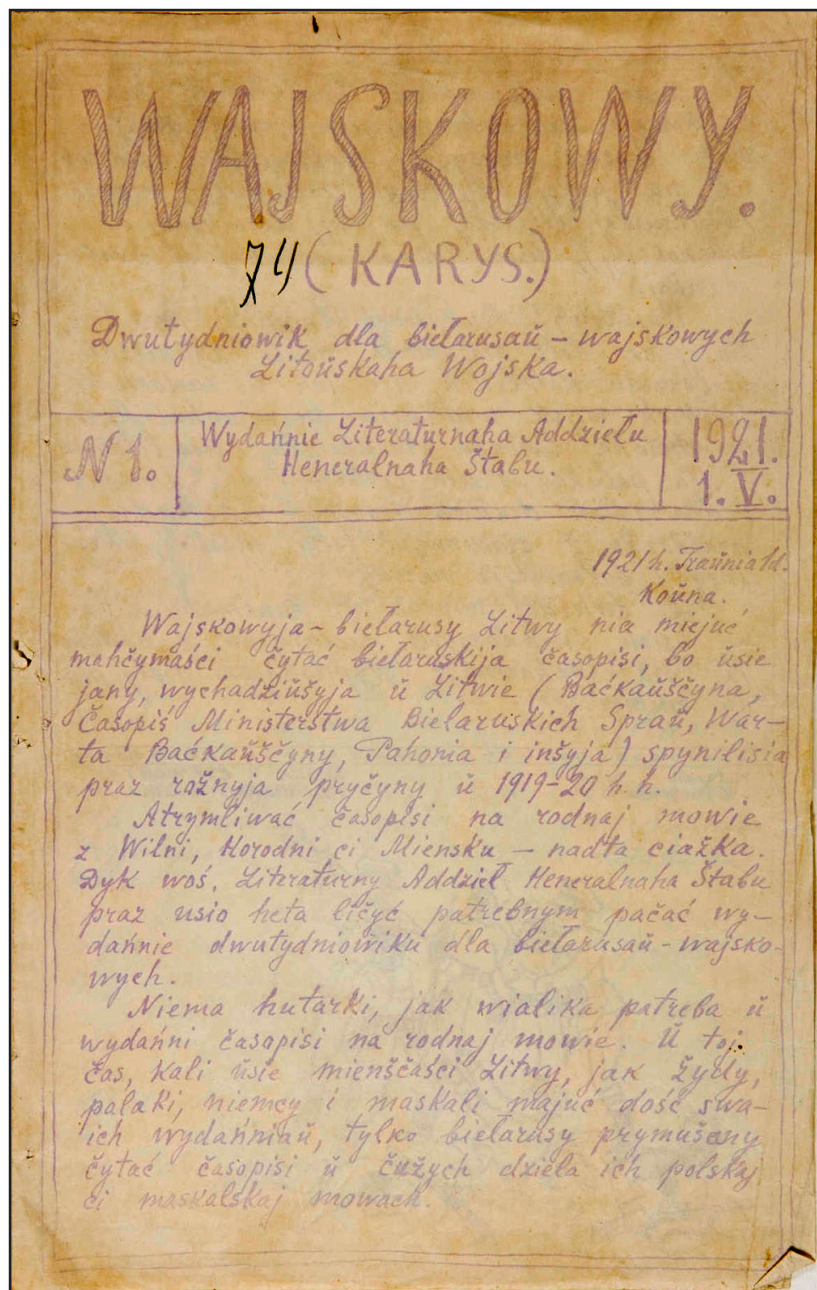 WAJSKOWY.
74 (KARYS.)
Dwutydniowik dla biełarusaŭ - wajskowych
Litoŭskaha Wojska.
N 1.
Wydańnie Literaturnaha Addziełu
Heneralnaha Štabu.
1921.
1. V.
1921 h. Traŭnia 1d.
Koŭna.
Wajskowyja - biełarusy Litwy nia miejuć
mahčymaści čytać biełaruskija časopisi, bo ŭsie
jany, wychadziŭšyja ŭ Litwie (Baćkaŭščyna,
Časopiś Ministerstwa Biełaruskich Spraŭ, War-
ta Baćkaŭščyny, Pahonia i inšyja) spynilisia
praz rožnyja pryčyny ŭ 1919-20 h. h.
Atrymliwać časopisi na rodnaj mowie
z Wilni, Horodni ci Miensku — nadta ciažka.
Dyk woś, Literaturny Addzieł Heneralnaha Štabu
praz usio heta ličyć patrebnym pačać wy-
dańnie dwutydniowiku dla biełarusaŭ - wajsko-
wych.
Niema hutarki, jak wialika patreba ŭ
wydańni časopisi na rodnaj mowie. Ŭ toj
čas, kali ŭsie mienščaści Litwy, jak žydy,
palaki, niemcy i maskali majuć dość swa-
ich wydańniaŭ, tylko biełarusy prymušany
čytać časopisi ŭ čužych dzieła ich polskaj
ci maskalskaj mowach.